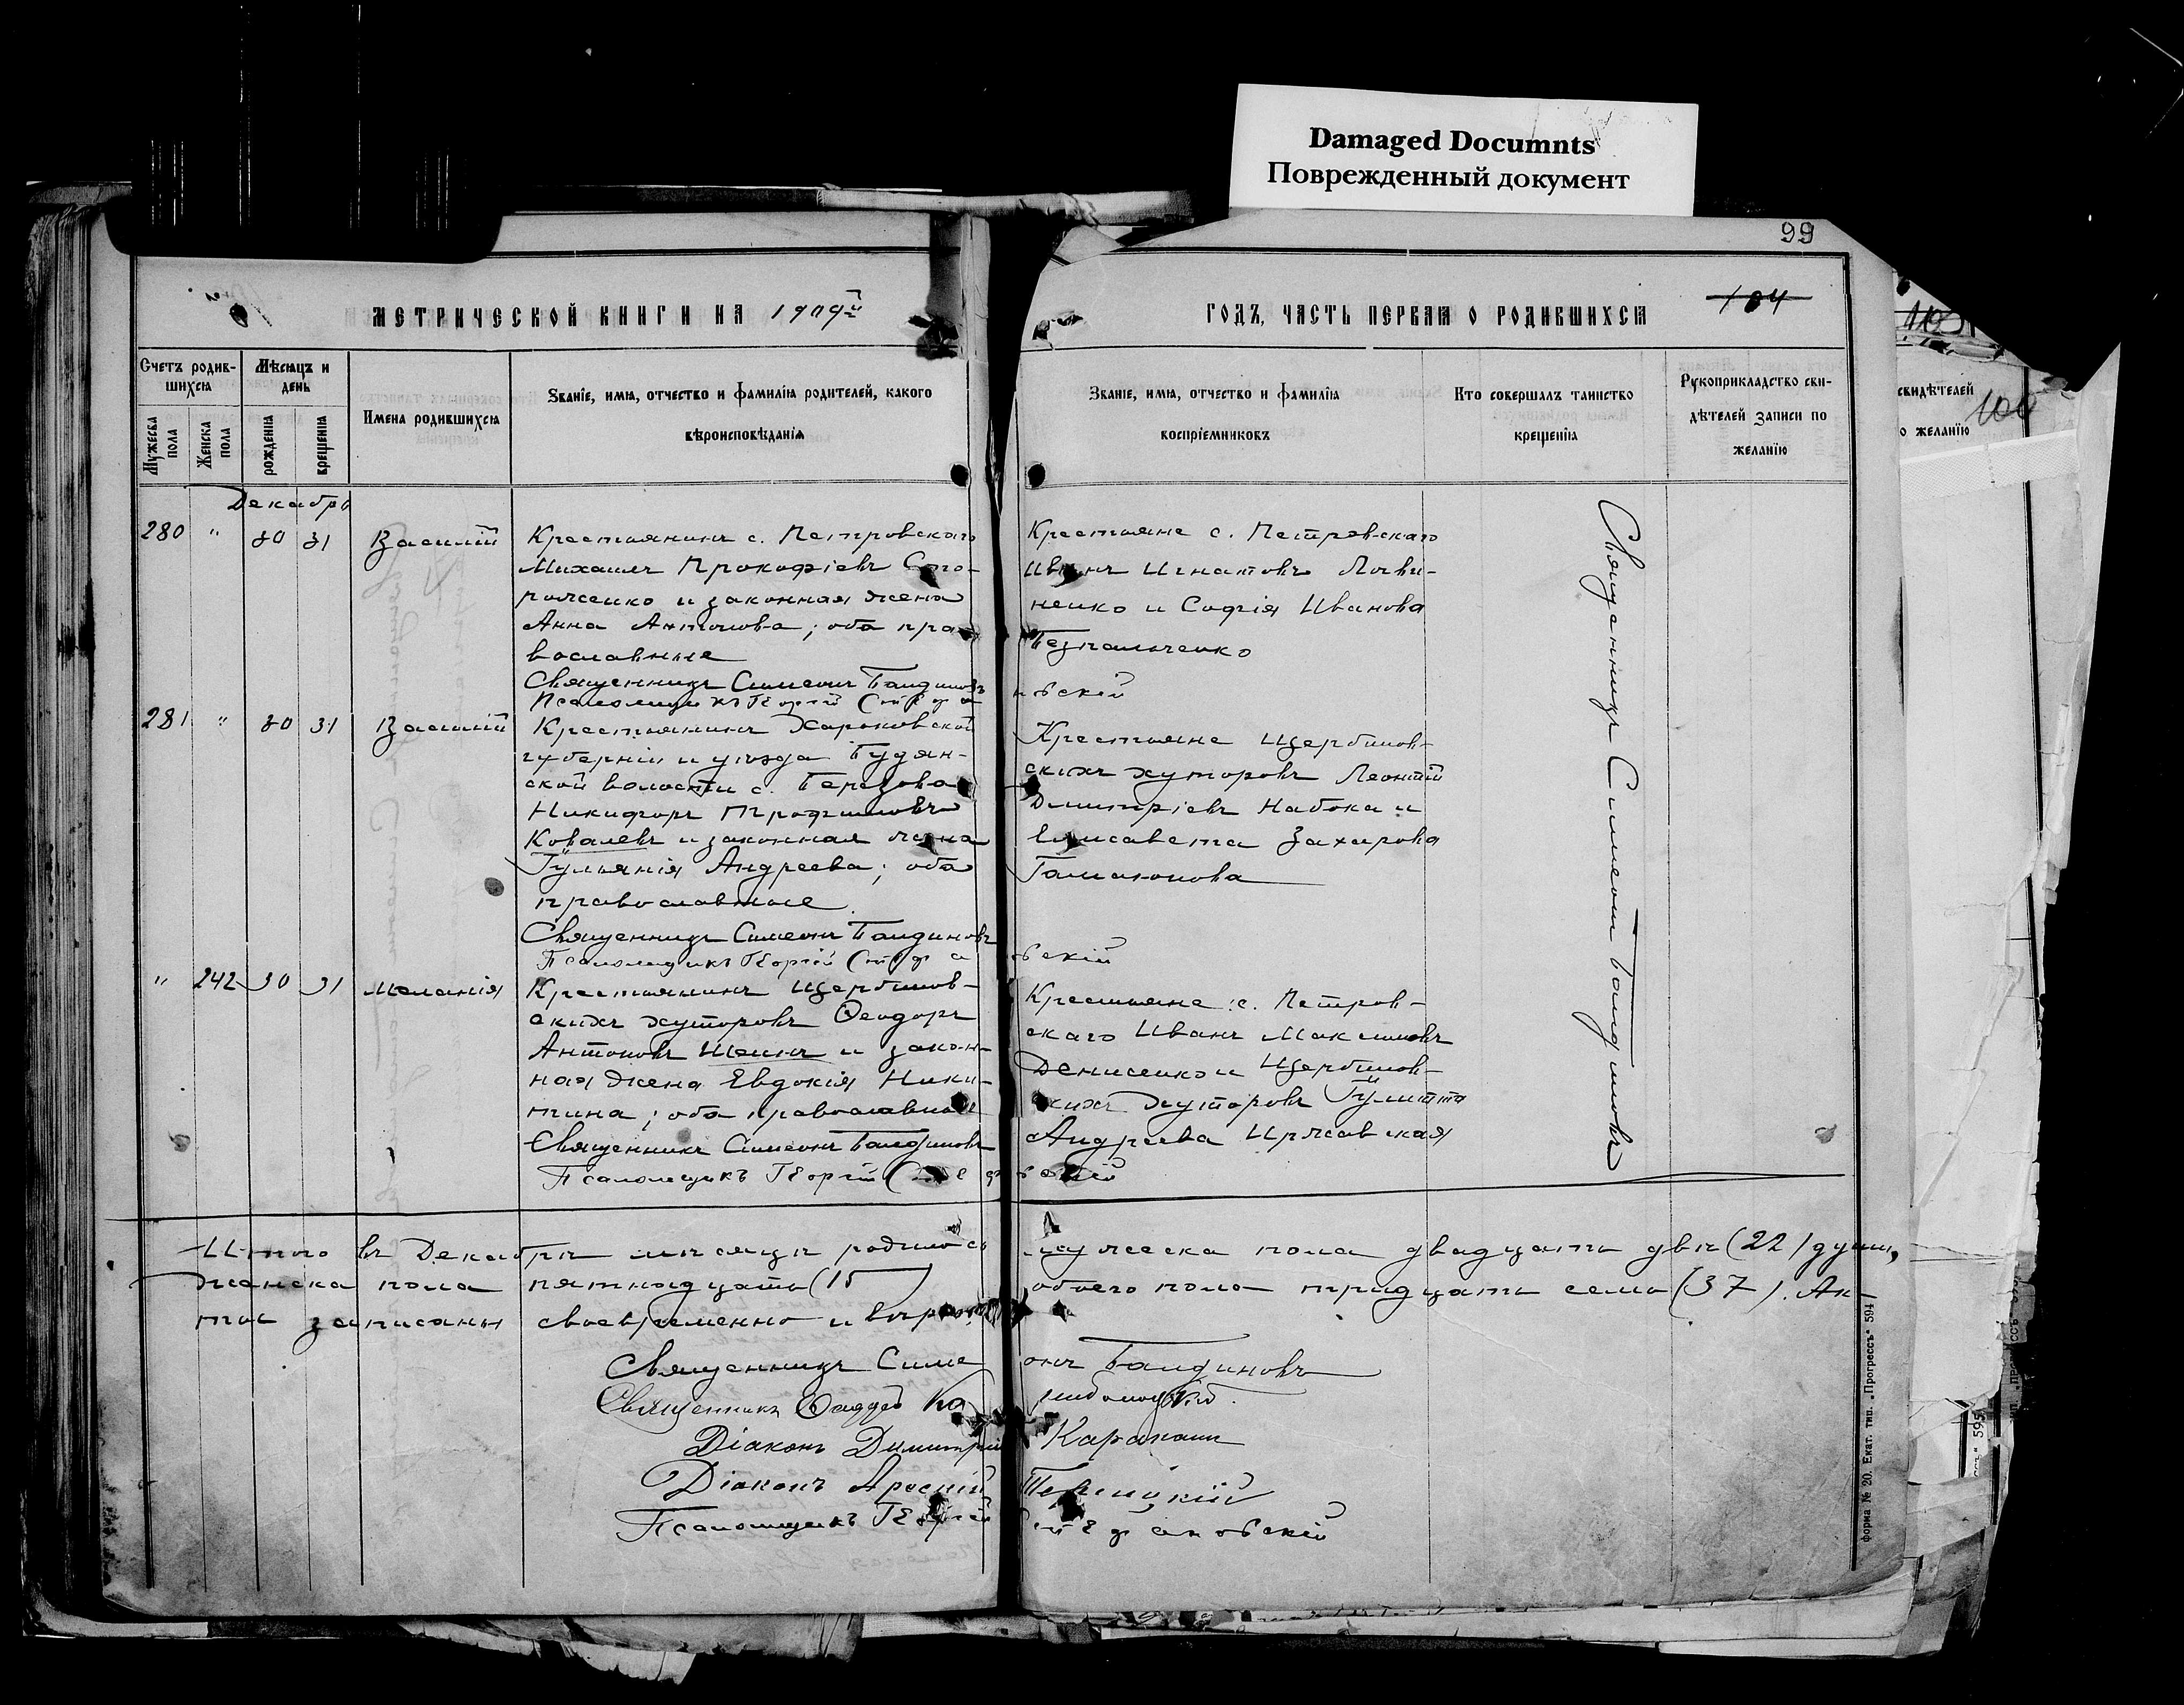 Damaged Documnts
Поврежденный документ
99
МЕТРИЧЕСКОЙ КНИГИ НА 1909й
ГОДЪ, ЧАСТЬ ПЕРВАЯ О РОДИВШИХСЯ
104
Счетъ родив-
шихся
Мужеска пола
Женска пола
Мѣсяцъ и
день
рожденія
крещенія
Имена родившихся
Званіе, имя, отчество и фамилія родителей, какого
вѣроисповѣданія
Званіе, имя, отчество и фамилія
воспріемниковъ
Кто совершалъ таинство
крещенія
Рукоприкладство сви-
дѣтелей записи по
желанію
свидѣтелей
о желанію
100
Декабрь
280 " 30 31 Василій
Крестьянинъ с. Петровскаго
Михаилъ Прокофіевъ Сто-
роженко и законная жена
Анна Антонова; оба пра-
вославные
Священникъ Симеонъ Баидиновъ
Псаломщикъ Георгій Стефановскій
Крестьяне с. Петровскаго
Иванъ Игнатовъ Логви-
ненко и Софія Иванова
Безпальченко
281 " 30 31 Василій
Крестьянинъ Харьковской
губерніи и уѣзда Будян-
ской волости с. Березова
Никифоръ Трофимовъ
Ковалевъ и законная жена
Іульянія Андреева; оба
православные
Священникъ Симеонъ Баидиновъ
Псаломщикъ Георгій Стефановскій
Крестьяне Щербинов-
скихъ хуторовъ Леонтій
Димитріевъ Набока и
Елисавета Захарова
Галионова
" 242 30 31 Меланія
Крестьянинъ Щербинов-
скихъ хуторовъ Ѳеодоръ
Антоновъ Шеинъ и закон-
ная жена Евдокія Ники-
тина; оба православные
Священникъ Симеонъ Баидиновъ
Псаломщикъ Георгій Стефановскій
Крестьяне с. Петров-
скаго Иванъ Максимовъ
Денисенко и Щербинов-
скихъ хуторовъ Іулитта
Андреева Иржавская
Священникъ Симеонъ Баидиновъ
Итого въ Декабрѣ мѣсяцѣ родилось мужеска пола двадцать двѣ (22) души,
женска пола пятнадцать (15) обоего пола тридцать семь (37). Ак-
ты записаны своевременно и вѣрно
Священникъ Симеонъ Баидиновъ
Священникъ Ѳаддей
Діаконъ Димитрій Карапашъ
Діаконъ Арсеній
Псаломщикъ Георгій Стефановскій
форма № 20. Екат. тип. „Прогрессъ“ 594
595